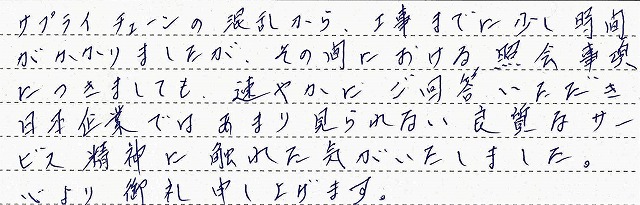 サプライチェーンの混乱から、工事までに少し時間
がかかりましたが、その間における照会事項
につきましても 速やかにご回答いただき
日本企業ではあまり見られない良質なサー
ビス精神に触れた気がいたしました。
心より御礼申し上げます。